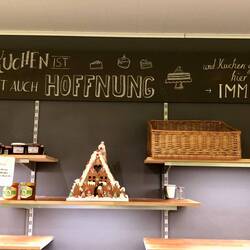 KUCHEN IST
AUCH HOFFNUNG
und Kuchen
hier
→ IMM